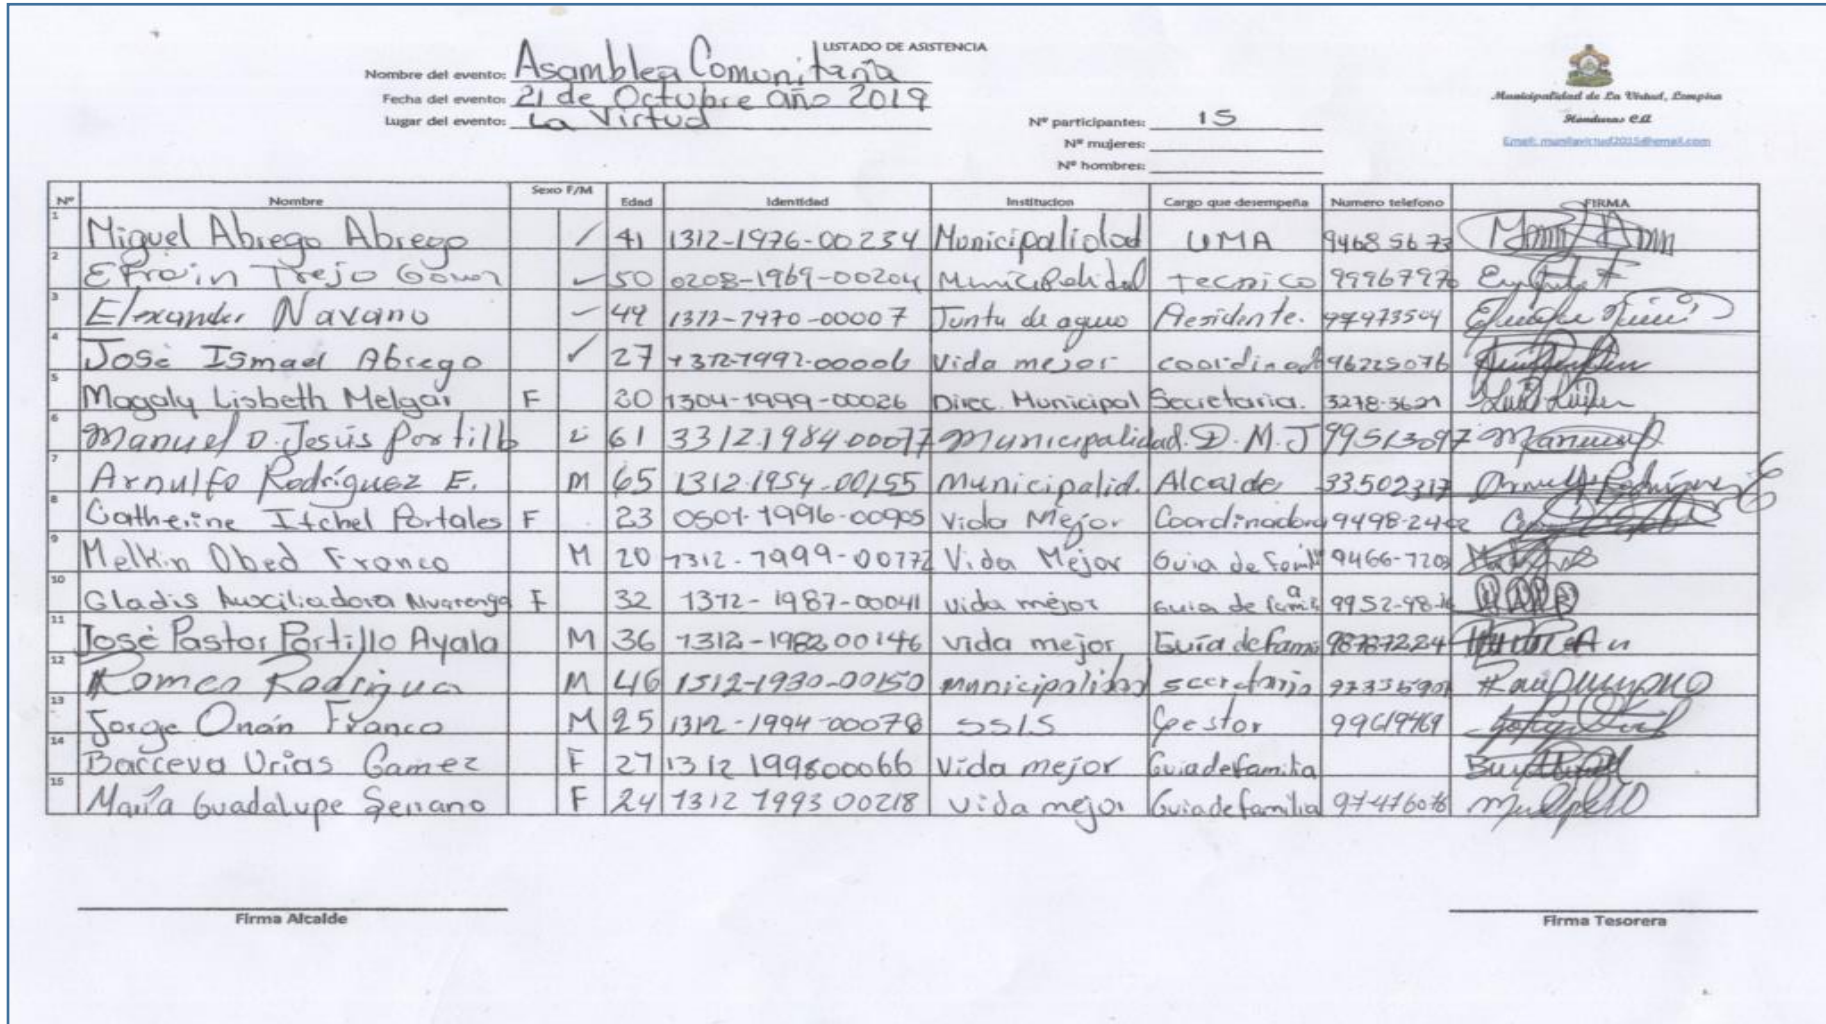 LISTADO DE ASISTENCIA
Nombre del evento: Asamblea Comunitaria
Fecha del evento: 21 de Octubre año 2019
Lugar del evento: La Virtud
Nº participantes: 15
Nº mujeres:
Nº hombres:
Municipalidad de La Virtud, Lempira
Honduras C.A.
Email: munilavirtud2015@email.com
Nº Nombre Sexo F/M Edad Identidad Institucion Cargo que desempeña Numero telefono FIRMA
1 Miguel Abrego Abrego 41 1312-1976-00234 Municipalidad UMA 94685673
2 Efrain Trejo 50 0208-1969-00204 Municipalidad tecnico 99967976
3 Elexander Navarro 49 1312-1970-00007 Junta de agua Presidente. 97973504
4 José Ismael Abrego 27 1312-1992-00006 Vida mejor coordinad 96225076
5 Magaly Lisbeth Melgar F 20 1304-1999-00026 Direc. Municipal Secretaria. 3278-3621
6 Manuel D. Jesús Portillo 61 3312-1984-00077 Municipalidad. D.M.J 99513097
7 Arnulfo Rodríguez E. M 65 1312-1954-00155 Municipalid. Alcalde 33502317
8 Catherine Itchel Portales F 23 0501-1996-00905 Vida Mejor Coordinadora 9498-2402
9 Melkin Obed Franco M 20 1312-1999-00172 Vida Mejor Guia de famil 9466-7208
10 Gladis Auxiliadora Alvarenga F 32 1312-1987-00041 vida mejor Guia de famia 9952-98
11 José Pastor Portillo Ayala M 36 1312-1982 00146 vida mejor Guía de fami 98787224
12 Romeo Rodrigue M 46 1312-1930-00150 municipalidad secretario 97335901
13 Jorge Onán Franco M 25 1312-1994-00078 SSIS Gestor 99619469
14 Bacceva Urias Gamez F 27 1312 199800066 Vida mejor Guia de familia
15 María Guadalupe Serrano F 24 1312 1993 00218 vida mejor Guia de familia 97476076
Firma Alcalde
Firma Tesorera